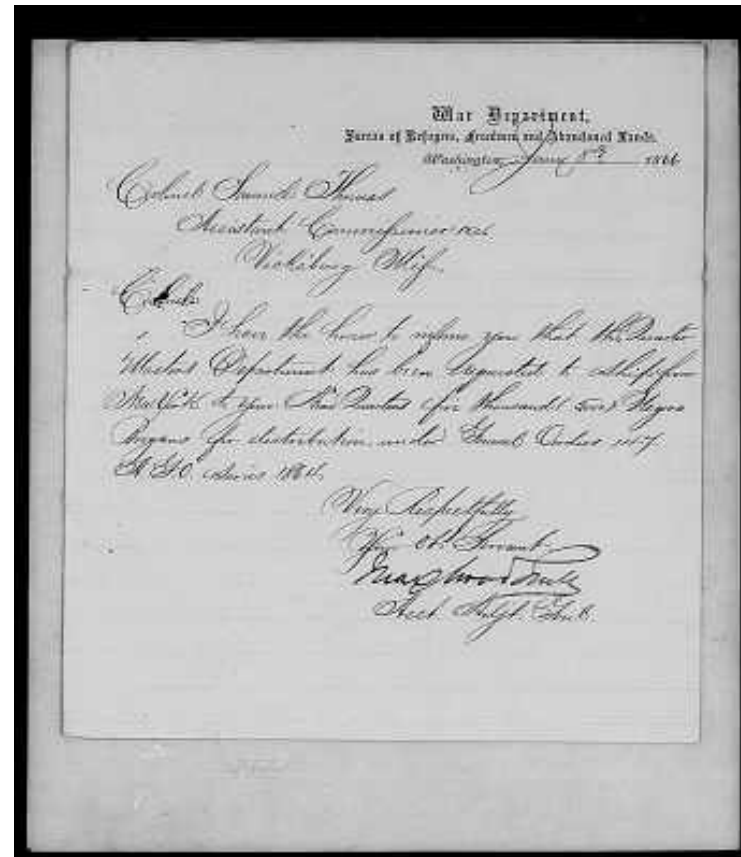 War Department,
Bureau of Refugees, Freedmen and Abandoned Lands.
Washington, Jany 8th 1866
Colonel Samuel Thomas
Assistant Commissioner &c
Vicksburg Miss
Colonel
I have the honor to inform you that the Quarter
Masters Department has been requested to ship from
New York to your Head Quarters five thousand 5000 Negro
for distribution under General Orders 
A.G.O. series 1864.
Very Respectfully
Your Ob. Servant
Act. Adjt. Genl.